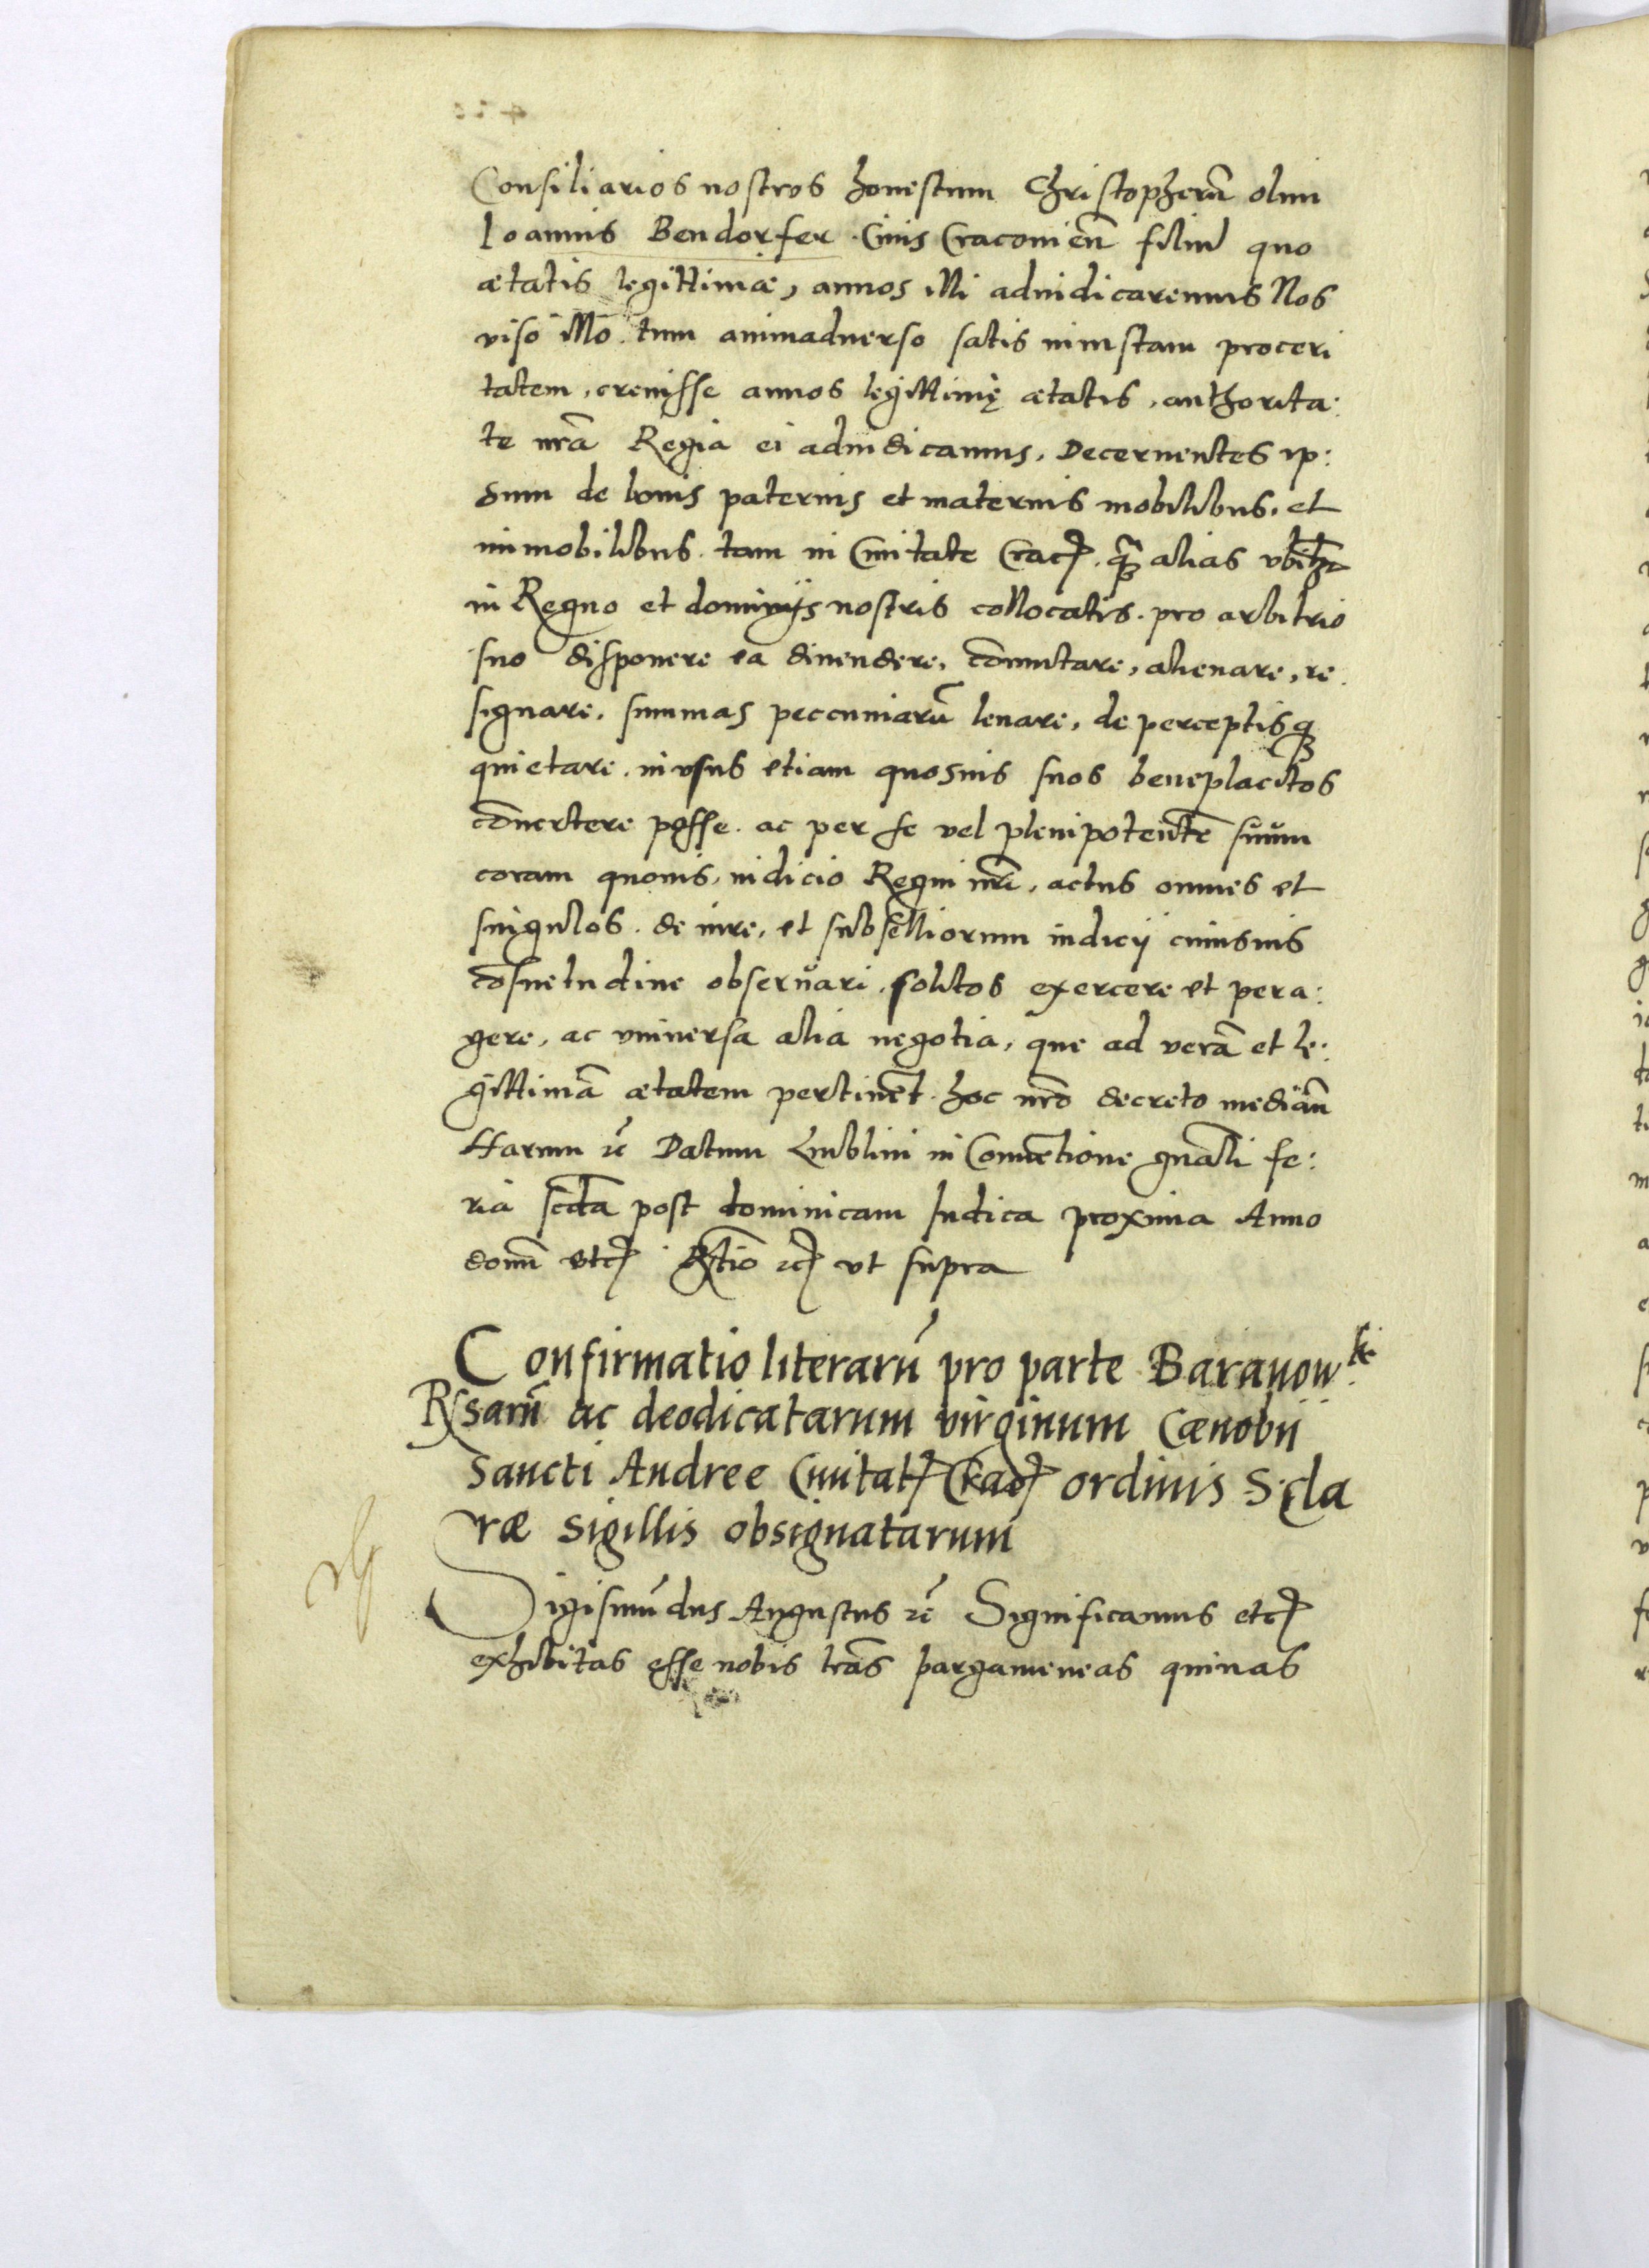 Consiliarios nostros honestum Christopherũ olim
Ioannis Bendorfer Ciuis Cracouieñ filiũ quo
ætatis legittimæ, annos illi adiudicaremus Nos
viso illo tum animaduerso satis in iustam proceri
tatem, creuisse annos legittimę ætatis, authorita:
te nrã Regia ei adiudicamus, Decernentes ip:
sum de bonis paternis et maternis mobilibus, et
immobilibus tam in Ciuitate Crac. quã alias vbilz
in Regno et dominijs nostris collocatis. pro arbitrio
suo disponere ea diuendere, cõmutare, alienare, re
signare, summas peccuniarũ leuare, de perceptisq
quietare, in vsus etiam quosuis suos beneplacitos
cõuertere posse. ac per se vel plenipotentẽ suum
coram quouis, iudicio Regni nri, actus omnes et
singulos de iure, et subselliorum iudicij cuiusuis
cõsuetudine obseruari, solitos exercere et pera:
gere, ac vniuersa alia negotia, que ad verã et le:
gittimã ætatem pertinẽt hoc nrõ decreto mediañ
Harum rc̃ Datum Lublini in Conuẽtione gnali fe:
ria scda post dominicam Iudica proxima Anno
domĩ etc. Rtio rc. vt supra
Confirmatio literarũ pro parte Baranowsk:
Rsarũ ac deodicatarum virginum Cænobij
Sancti Andree Ciuitat. Crac. ordinis S. Cla
ræ sigillis obsignatarum
Sigismũdus Augustus rc̃ Significamus etc.
exhibitas esse nobis lrãs pargameneas quinas